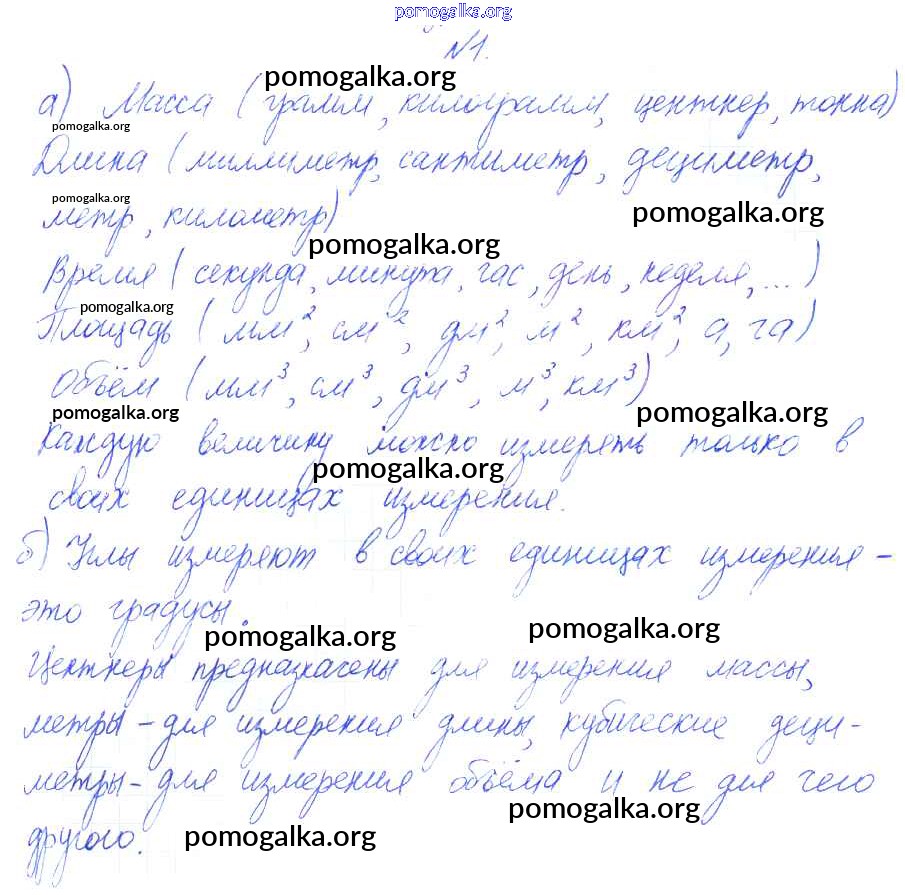 pomogalka.org
№1.
pomogalka.org
а) Масса (грамм, килограмм, центнер, тонна)
pomogalka.org
Длина (миллиметр, сантиметр, дециметр,
pomogalka.org
метр, километр)
pomogalka.org
pomogalka.org
Время (секунда, минута, час, день, неделя, ...)
pomogalka.org
Площадь (мм², см², дм², м², км², а, га)
Объём (мм³, см³, дм³, м³, км³)
pomogalka.org
pomogalka.org
Каждую величину можно измереть только в
pomogalka.org
своих единицах измерения.
б) Углы измеряют в своих единицах измерения -
это градусы.
pomogalka.org
pomogalka.org
Центнеры предназначены для измерения массы,
метры - для измерения длины, кубические деци-
метры - для измерения объёма и не для чего
pomogalka.org
другого.
pomogalka.org